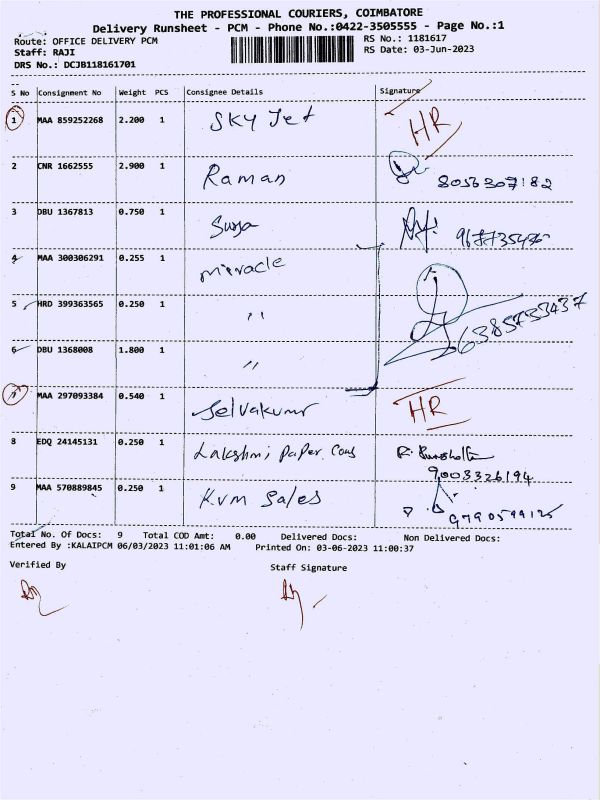 THE PROFESSIONAL COURIERS, COIMBATORE
Delivery Runsheet - PCM - Phone No.:0422-3505555 - Page No.:1
Route: OFFICE DELIVERY PCM RS No.: 1181617
Staff: RAJI RS Date: 03-Jun-2023
DRS No.: DCJB118161701
S No Consignment No Weight PCS Consignee Details Signature
1 MAA 859252268 2.200 1 SKY Jet HR
2 CNR 1662555 2.900 1 Raman 8056307182
3 DBU 1367813 0.750 1 Surya
4 MAA 300306291 0.255 1 miracle
5 HRD 399363565 0.250 1 " 6385733437
6 DBU 1368008 1.800 1 "
7 MAA 297093384 0.540 1 Selvakumr HR
8 EDQ 24145131 0.250 1 Lakshmi Paper Cons 9003326194
9 MAA 570889845 0.250 1 K.V.M Sales 9790599125
Total No. Of Docs: 9 Total COD Amt: 0.00 Delivered Docs: Non Delivered Docs:
Entered By :KALAIPCM 06/03/2023 11:01:06 AM Printed On: 03-06-2023 11:00:37
Verified By Staff Signature